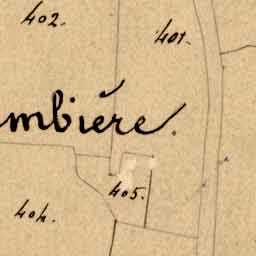 402.
401.
mbière.
405.
404.